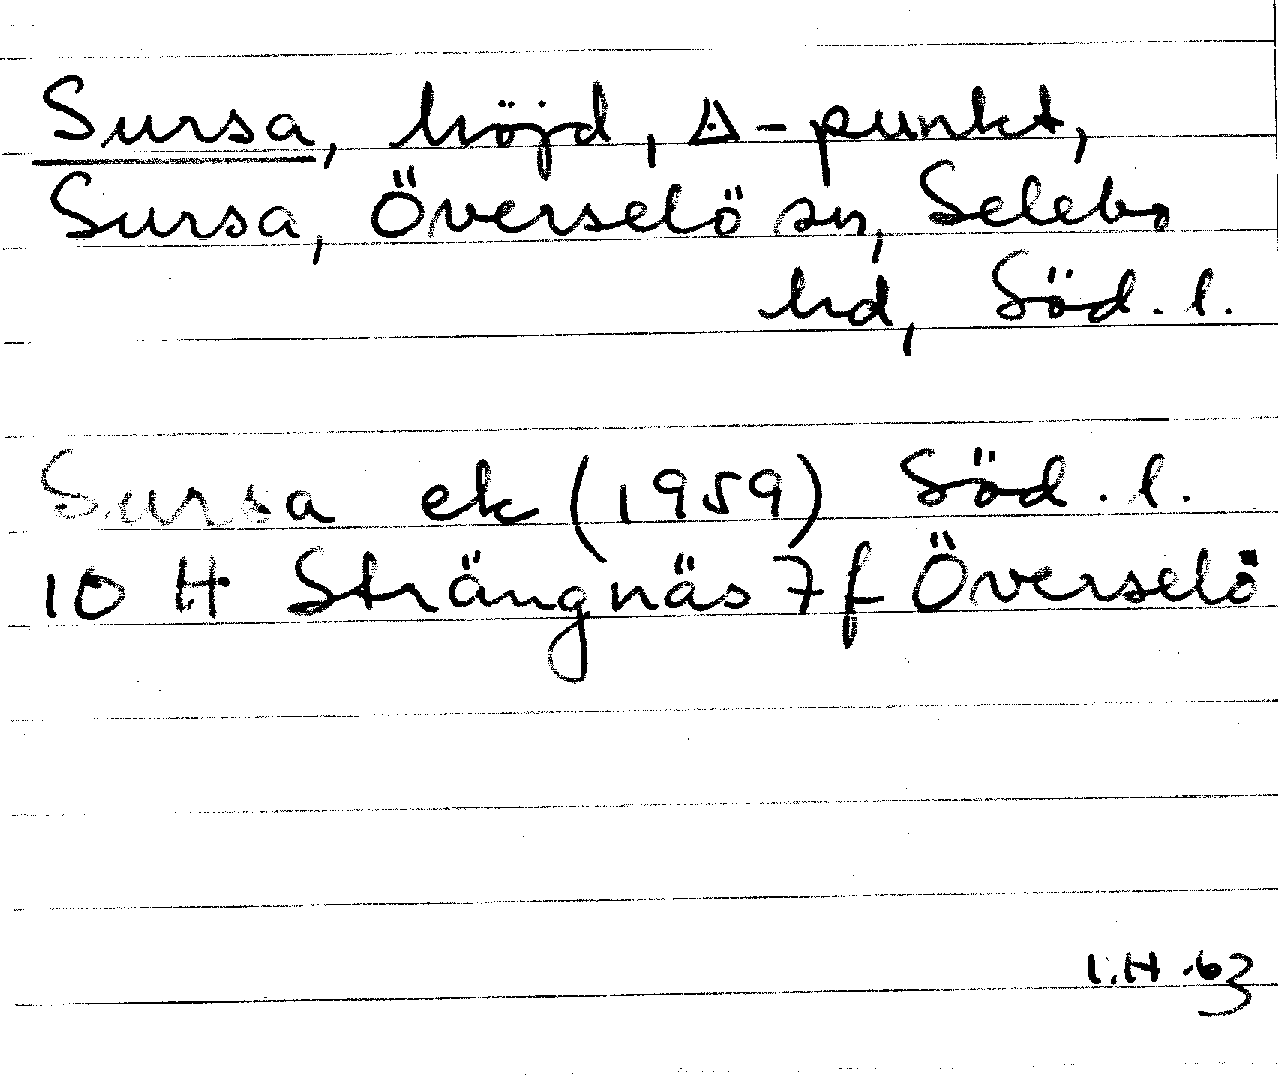 Sursa, höjd, △-punkt,
Sursa, Överselö sn, Selebo
hd, Söd. l.
Sursa ek (1959) Söd. l.
10 H Strängnäs 7f Överselö
I.H. 63